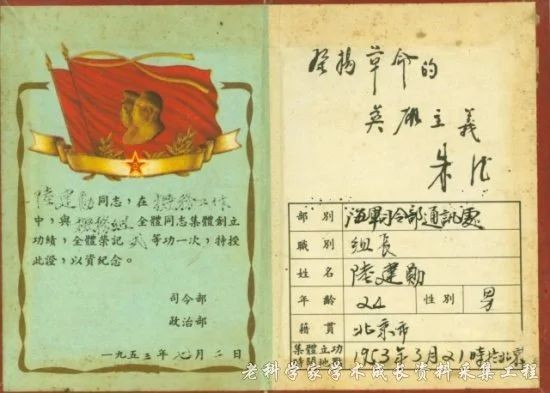 陸建勛同志，在
中，與　　全體同志集體創立
功績，全體榮記弍等功一次，特授
此證，以資紀念。
司令部
政治部
一九五三年七月二日
發揚革命的
英雄主義
朱德
部別 海軍司令部通訊處
職別 组長
姓名 陸建勛
年齡 24 性別 男
籍貫 北京市
集體立功時間地點 1953年3月21時於北京
老科学家学术成长资料采集工程